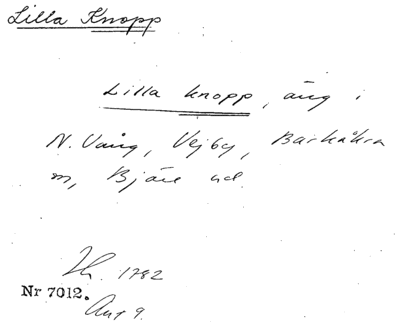 Lilla Knopp
Lilla knopp, äng i
N. Vång, Vejby, Barkåkra
sn, Bjäre hd.
1782
Nr 7012.